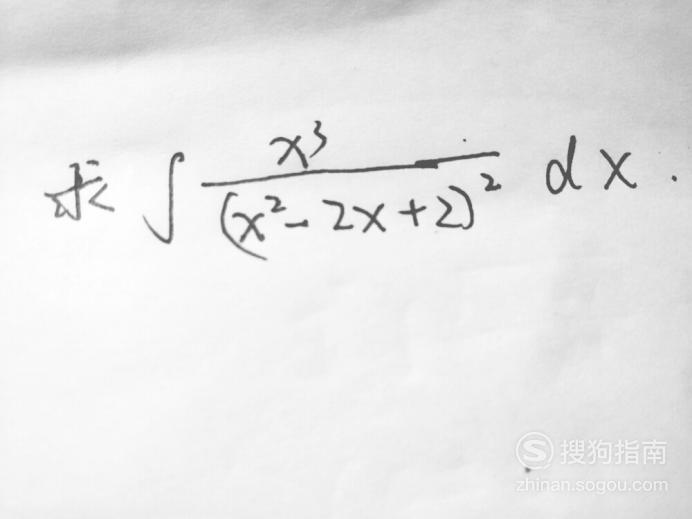 求 ∫ x³/(x²-2x+2)² dx.
S 搜狗指南
zhinan.sogou.com